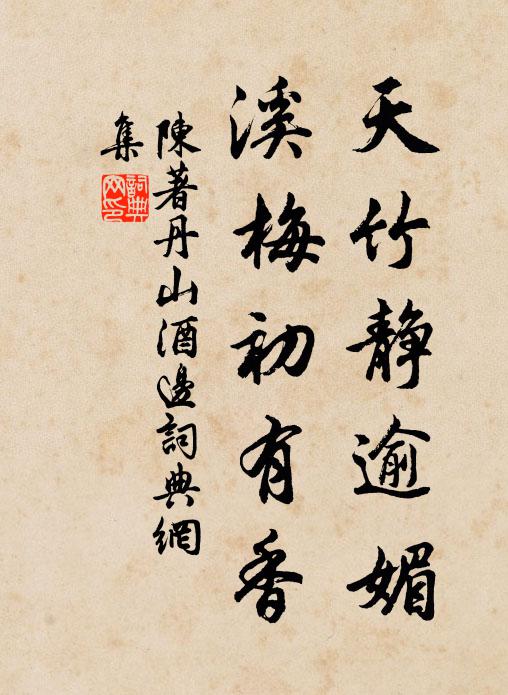 天竹静逾媚
溪梅初有香
陳著丹山酒邊詞典網
集
詞典
网印